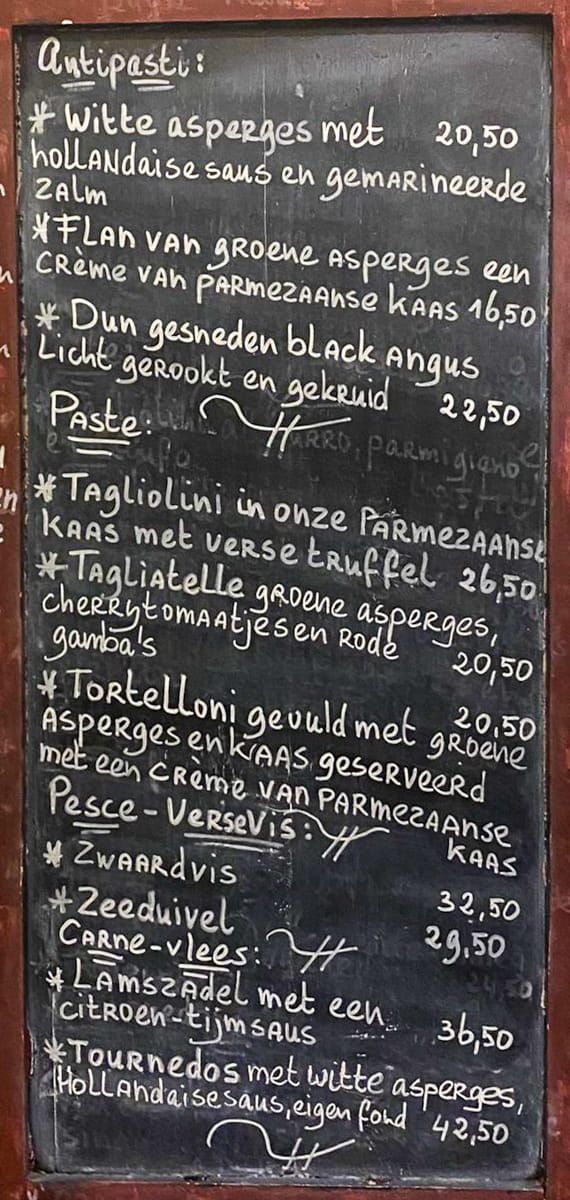 Antipasti:
* Witte asperges met 20,50
hollandaise saus en gemarineerde
zalm
* Flan van groene asperges een
crème van parmezaanse kaas 16,50
* Dun gesneden black angus
Licht gerookt en gekruid 22,50
Paste:
parmigiano
* Tagliolini in onze Parmezaanse
kaas met verse truffel 26,50
* Tagliatelle groene asperges,
cherrytomaatjes en rode
gamba's 20,50
* Tortelloni gevuld met groene 20,50
asperges en kaas, geserveerd
met een crème van parmezaanse
kaas
Pesce - Verse Vis:
* Zwaardvis 32,50
* Zeeduivel 29,50
Carne - vlees:
* Lamszadel met een
citroen-tijmsaus 36,50
* Tournedos met witte asperges,
Hollandaisesaus, eigen fond 42,50